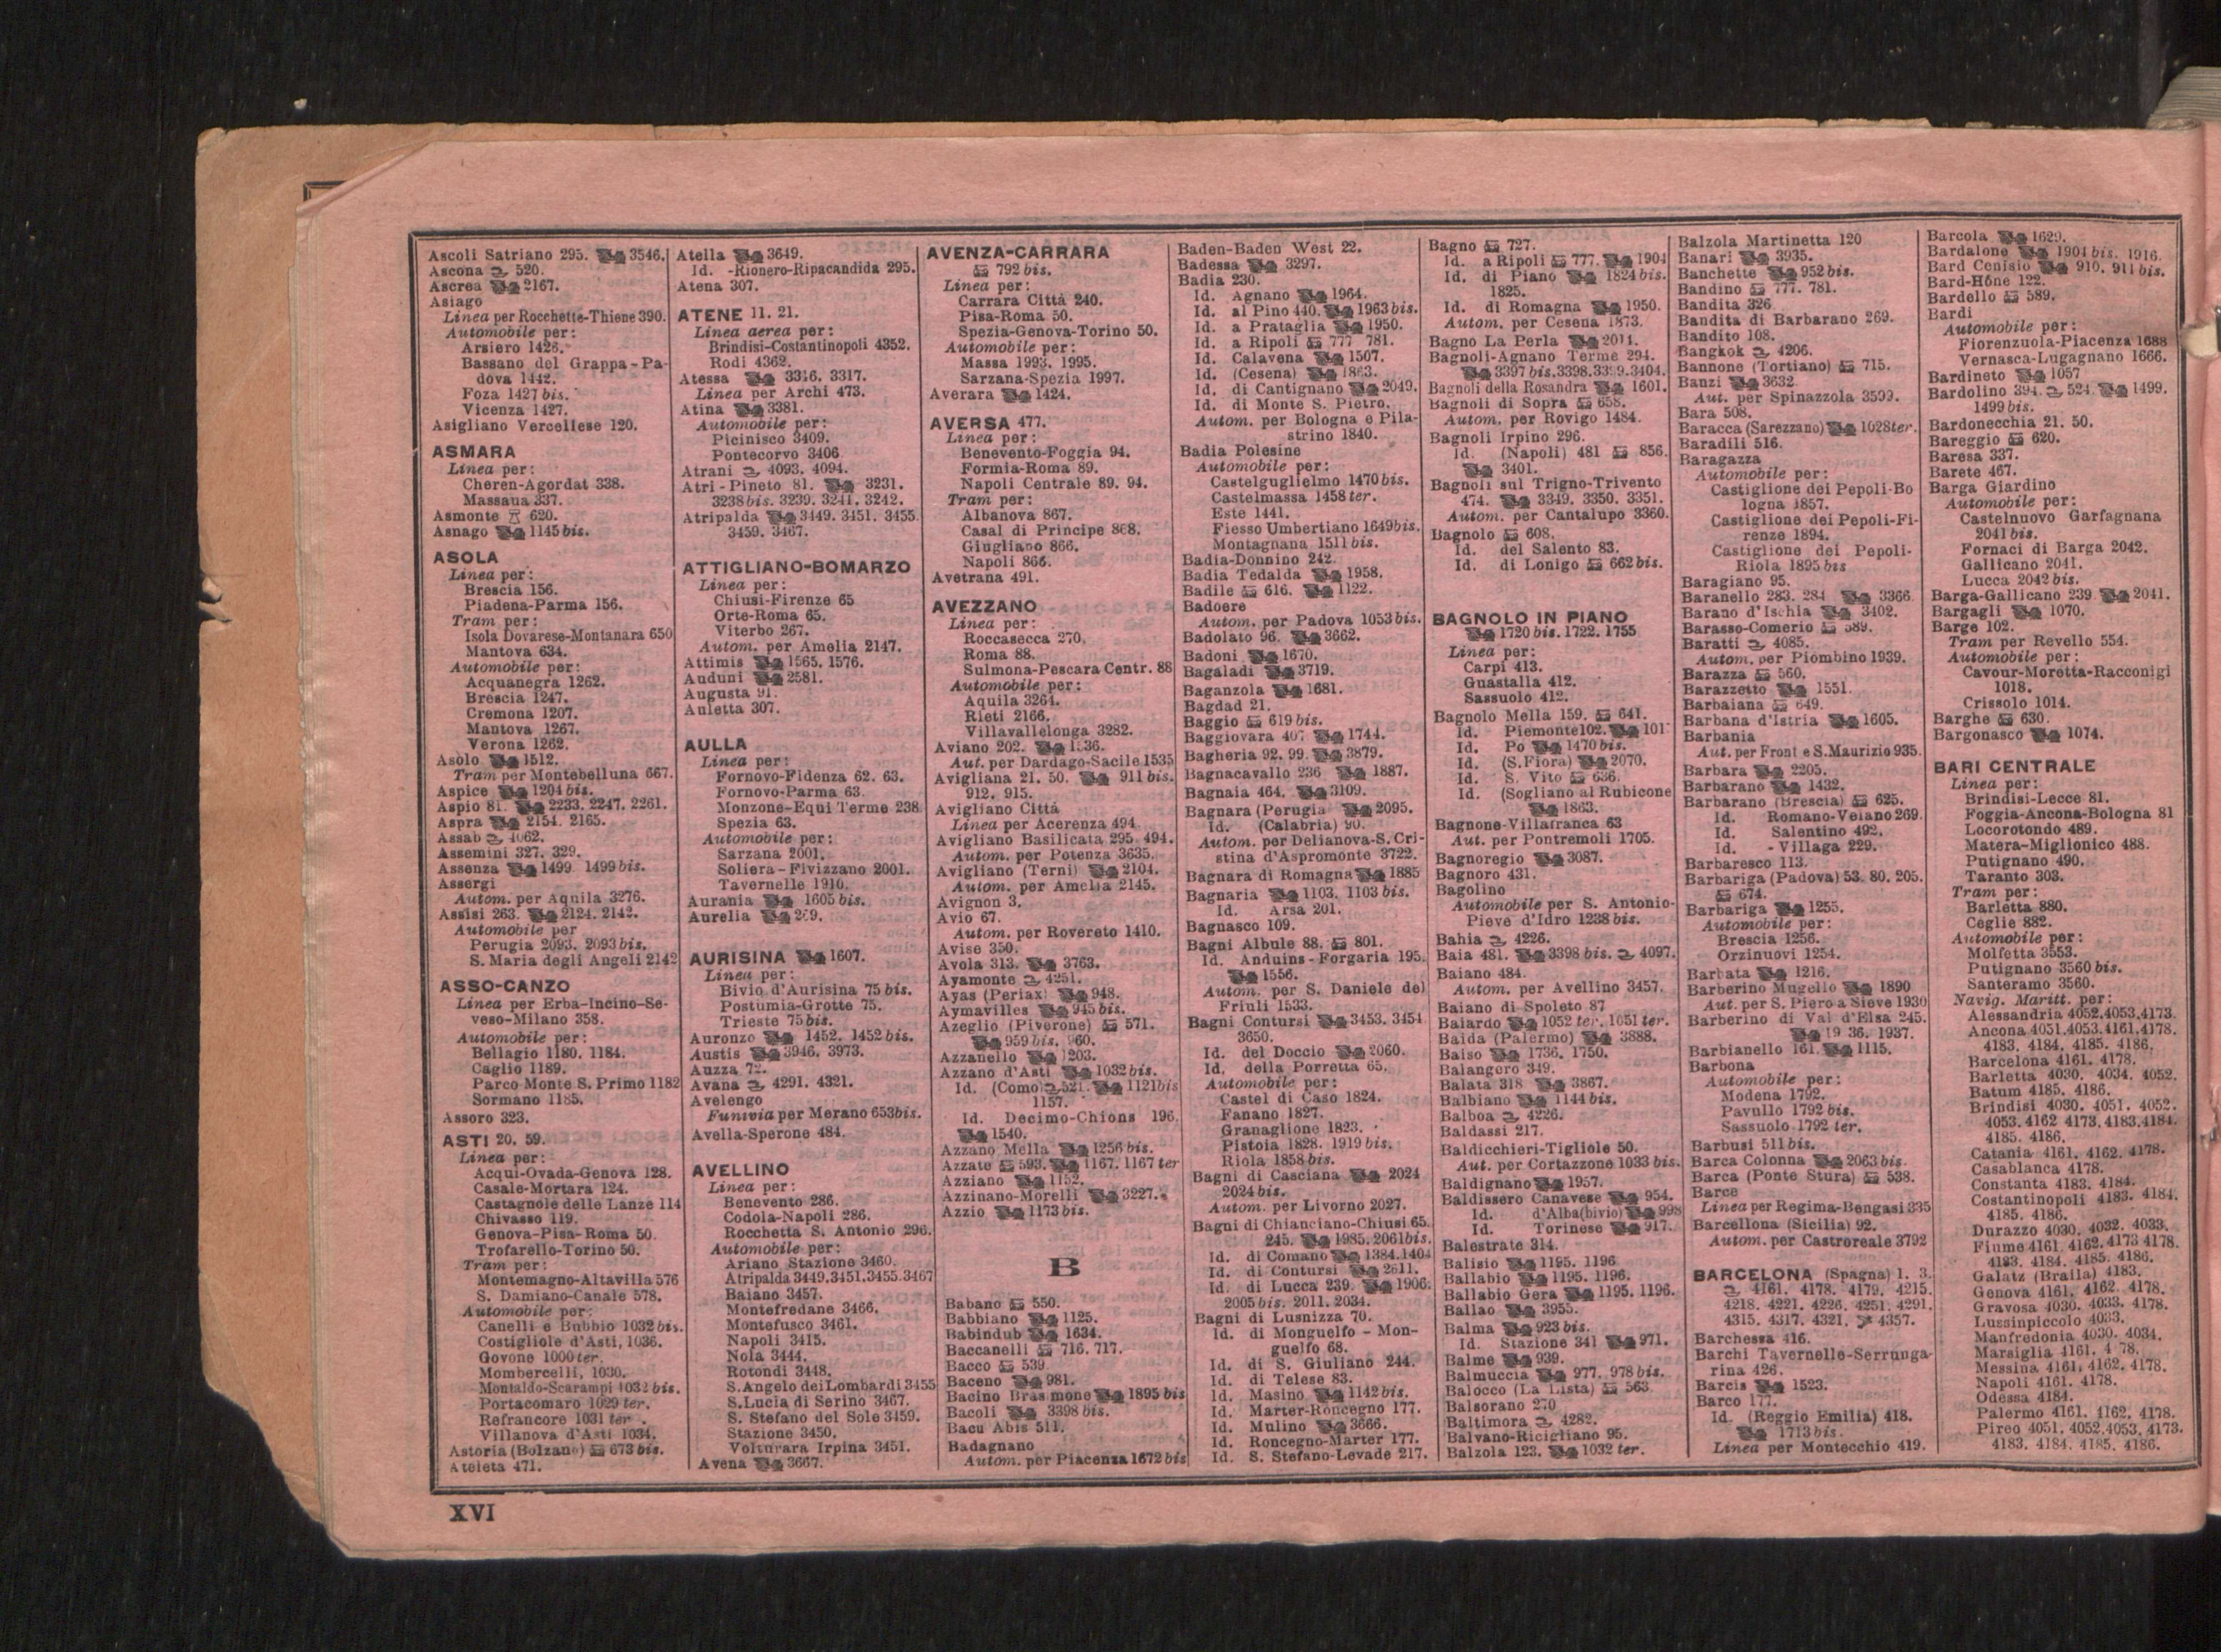 Ascoli Satriano 295. 3546.
Ascona 520.
Ascrea 2167.
Asiago
Linea per Rocchette-Thiene 390.
Automobile per:
Arsiero 1426.
Bassano del Grappa-Pa-
dova 1442.
Foza 1427 bis.
Vicenza 1427.
Asigliano Vercellese 120.
ASMARA
Linea per:
Cheren-Agordat 338.
Massaua 337.
Asmonte 620.
Asnago 1145 bis.
ASOLA
Linea per:
Brescia 156.
Piadena-Parma 156.
Tram per:
Isola Dovarese-Montanara 650
Mantova 634.
Automobile per:
Acquanegra 1262.
Brescia 1247.
Cremona 1207.
Mantova 1267.
Verona 1262.
Asolo 1512.
Tram per Montebelluna 667.
Aspice 1204 bis.
Aspio 81. 2233. 2247. 2261.
Aspra 2154. 2165.
Assab 4062.
Assemini 327. 329.
Assenza 1499. 1499 bis.
Assergi
Autom. per Aquila 3276.
Assisi 263. 2124. 2142.
Automobile per
Perugia 2093. 2093 bis.
S. Maria degli Angeli 2142
ASSO-CANZO
Linea per Erba-Incino-Se-
veso-Milano 358.
Automobile per:
Bellagio 1180. 1184.
Caglio 1189.
Parco Monte S. Primo 1182
Sormano 1185.
Assoro 323.
ASTI 20. 59.
Linea per:
Acqui-Ovada-Genova 128.
Casale-Mortara 124.
Castagnole delle Lanze 114
Chivasso 119.
Genova-Pisa-Roma 50.
Trofarello-Torino 50.
Tram per:
Montemagno-Altavilla 576
S. Damiano-Canale 578.
Automobile per:
Canelli e Bubbio 1032 bis.
Costigliole d'Asti, 1036.
Govone 1000 ter.
Mombercelli, 1030.
Montaldo-Scarampi 1032 bis.
Portacomaro 1029 ter.
Refrancore 1031 ter.
Villanova d'Asti 1034.
Astoria (Bolzano) 673 bis.
Ateleta 471.
Atella 3649.
Id. -Rionero-Ripacandida 295.
Atena 307.
ATENE 11. 21.
Linea aerea per:
Brindisi-Costantinopoli 4352.
Rodi 4362.
Atessa 3316. 3317.
Linea per Archi 473.
Atina 3381.
Automobile per:
Picinisco 3409.
Pontecorvo 3406
Atrani 4093. 4094.
Atri-Pineto 81. 3231.
3238 bis. 3239. 3241. 3242.
Atripalda 3449. 3451. 3455.
3459. 3467.
ATTIGLIANO-BOMARZO
Linea per:
Chiusi-Firenze 65
Orte-Roma 65.
Viterbo 267.
Autom. per Amelia 2147.
Attimis 1565. 1576.
Auduni 2581.
Augusta 91.
Auletta 307.
AULLA
Linea per:
Fornovo-Fidenza 62. 63.
Fornovo-Parma 63.
Monzone-Equi Terme 238
Spezia 63.
Automobile per:
Sarzana 2001.
Soliera-Fivizzano 2001.
Tavernelle 1910.
Aurania 1605 bis.
Aurelia
AURISINA 1607.
Linea per:
Bivio d'Aurisina 75 bis.
Postumia-Grotte 75.
Trieste 75 bis.
Auronzo 1452. 1452 bis.
Austis 3946. 3973.
Auzza 72.
Avana 4291. 4321.
Avelengo
Funivia per Merano 653 bis.
Avella-Sperone 484.
AVELLINO
Linea per:
Benevento 286.
Codola-Napoli 286.
Rocchetta S. Antonio 296.
Automobile per:
Ariano Stazione 3460.
Atripalda 3449.3451.3455.3467
Baiano 3457.
Montefredane 3466.
Montefusco 3461.
Napoli 3415.
Nola 3444.
Rotondi 3448.
S. Angelo dei Lombardi 3455
S. Lucia di Serino 3467.
S. Stefano del Sole 3459.
Stazione 3450.
Volturara Irpina 3451.
Avena 3667.
AVENZA-CARRARA
792 bis.
Linea per:
Carrara Città 240.
Pisa-Roma 50.
Spezia-Genova-Torino 50.
Automobile per:
Massa 1993. 1995.
Sarzana-Spezia 1997.
Averara 1424.
AVERSA 477.
Linea per:
Benevento-Foggia 94.
Formia-Roma 89.
Napoli Centrale 89. 94.
Tram per:
Albanova 867.
Casal di Principe 868.
Giugliano 866.
Napoli 866.
Avetrana 491.
AVEZZANO
Linea per:
Roccasecca 270.
Roma 88.
Sulmona-Pescara Centr. 88
Automobile per:
Aquila 3264.
Rieti 2166.
Villavallelonga 3282.
Aviano 202. 1536.
Aut. per Dardago-Sacile 1535
Avigliana 21. 50. 911 bis.
912. 915.
Avigliano Città
Linea per Acerenza 494
Avigliano Basilicata 295. 494.
Autom. per Potenza 3635.
Avigliano (Terni) 2104.
Autom. per Amelia 2145.
Avignon 3.
Avio 67.
Autom. per Rovereto 1410.
Avise 350.
Avola 313. 3763.
Ayamonte 4251.
Ayas (Periax) 948.
Aymavilles 945 bis.
Azeglio (Piverone) 571.
959 bis. 960.
Azzanello 1203.
Azzano d'Asti 1032 bis.
Id. (Como) 521. 1121 bis
1157.
Id. Decimo-Chions 196.
1540.
Azzano Mella 1256 bis.
Azzate 593. 1167. 1167 ter
Azziano 1152.
Azzinano-Morelli 3227.
Azzio 1173 bis.
B
Babano 550.
Babbiano 1125.
Babindub 1634.
Baccanelli 716. 717.
Bacco 539
Baceno 981.
Bacino Brasimone 1895 bis
Bacoli 3398 bis.
Bacu Abis 511.
Badagnano
Autom. per Piacenza 1672 bis
Baden-Baden West 22.
Badessa 3297.
Badia 230.
Id. Agnano 1964.
Id. al Pino 440. 1963 bis.
Id. a Prataglia 1950.
Id. a Ripoli 777 781.
Id. Calavena 1507.
Id. (Cesena) 1863.
Id. di Cantignano 2049.
Id. di Monte S. Pietro.
Autom. per Bologna e Pila-
strino 1840.
Badia Polesine
Automobile per:
Castelguglielmo 1470 bis.
Castelmassa 1458 ter.
Este 1441.
Fiesso Umbertiano 1649 bis.
Montagnana 1511 bis.
Badia-Donnino 242.
Badia Tedalda 1958.
Badile 616. 1122.
Badoere
Autom. per Padova 1053 bis.
Badolato 96. 3662.
Badoni 1670.
Bagaladi 3719.
Baganzola 1681.
Bagdad 21.
Baggio 619 bis.
Baggiovara 407 1744.
Bagheria 92. 99. 3879.
Bagnacavallo 236 1887.
Bagnaia 464. 3109.
Bagnara (Perugia 2095.
Id. (Calabria) 90.
Autom. per Delianova-S. Cri-
stina d'Aspromonte 3722.
Bagnara di Romagna 1885
Bagnaria 1103. 1103 bis.
Id. Arsa 201.
Bagnasco 109.
Bagni Albule 88. 801.
Id. Anduins-Forgaria 195.
1556.
Autom. per S. Daniele del
Friuli 1533.
Bagni Contursi 3453. 3454
3650.
Id. del Doccio 2060.
Id. della Porretta 65.
Automobile per:
Castel di Caso 1824.
Fanano 1827.
Granaglione 1823.
Pistoia 1828. 1919 bis.
Riola 1858 bis.
Bagni di Casciana 2024
2024 bis.
Autom. per Livorno 2027.
Bagni di Chianciano-Chiusi 65.
245. 1985. 2061 bis.
Id. di Comano 1384.1404
Id. di Contursi 2611.
Id. di Lucca 239. 1906.
2005 bis. 2011. 2034.
Bagni di Lusnizza 70.
Id. di Monguelfo - Mon-
guelfo 68.
Id. di S. Giuliano 244.
Id. di Telese 83.
Id. Masino 1142 bis.
Id. Marter-Roncegno 177.
Id. Mulino 3666.
Id. Roncegno-Marter 177.
Id. S. Stefano-Levade 217.
Bagno 727.
Id. a Ripoli 777. 1904
Id. di Piano 1824 bis.
1825.
Id. di Romagna 1950.
Autom. per Cesena 1873.
Bagno La Perla 2011.
Bagnoli-Agnano Terme 294.
3397 bis.3398.3399.3404.
Bagnoli della Rosandra 1601.
Bagnoli di Sopra 658.
Autom. per Rovigo 1484.
Bagnoli Irpino 296.
Id. (Napoli) 481 856.
3401.
Bagnoli sul Trigno-Trivento
474. 3349. 3350. 3351.
Autom. per Cantalupo 3360.
Bagnolo 608.
Id. del Salento 83.
Id. di Lonigo 662 bis.
BAGNOLO IN PIANO
1720 bis. 1722. 1755
Linea per:
Carpi 413.
Guastalla 412.
Sassuolo 412.
Bagnolo Mella 159. 641.
Id. Piemonte 102. 101
Id. Po 1470 bis.
Id. (S. Fiora) 2070.
Id. S. Vito 636.
Id. (Sogliano al Rubicone
1863.
Bagnone-Villafranca 63
Aut. per Pontremoli 1705.
Bagnoregio 3087.
Bagnoro 431.
Bagolino
Automobile per S. Antonio-
Pieve d'Idro 1238 bis.
Bahia 4226.
Baia 481. 3398 bis. 4097.
Baiano 484.
Autom. per Avellino 3457.
Baiano di Spoleto 87
Baiardo 1052 ter. 1051 ter.
Baida (Palermo) 3888.
Baiso 1736. 1750.
Balangero 349.
Balata 318 3867.
Balbiano 1144 bis.
Balboa 4226.
Baldassi 217.
Baldicchieri-Tigliole 50.
Aut. per Cortazzone 1033 bis.
Baldignano 1957.
Baldissero Canavese 954.
Id. d'Alba (bivio) 998
Id. Torinese 917.
Balestrate 314.
Balisio 1195. 1196
Ballabio 1195. 1196.
Ballabio Gera 1195. 1196.
Ballao 3955.
Balma 923 bis.
Id. Stazione 341 971.
Balme 939.
Balmuccia 977. 978 bis.
Balocco (La Lista) 563.
Balsorano 270
Baltimora 4282.
Balvano-Ricigliano 95.
Balzola 123. 1032 ter.
Balzola Martinetta 120
Banari 3935.
Banchette 952 bis.
Bandino 777. 781.
Bandita 326
Bandita di Barbarano 269.
Bandito 108.
Bangkok 4206.
Bannone (Tortiano) 715.
Banzi 3632
Aut. per Spinazzola 3599.
Bara 508.
Baracca (Sarezzano) 1028 ter.
Baradili 516.
Baragazza
Automobile per:
Castiglione dei Pepoli-Bo
logna 1857.
Castiglione dei Pepoli-Fi-
renze 1894.
Castiglione dei Pepoli-
Riola 1895 bis
Baragiano 95.
Baranello 283. 284 3366
Barano d'Ischia 3402.
Barasso-Comerio 589.
Baratti 4085.
Autom. per Piombino 1939.
Barazza 560.
Barazzetto 1551.
Barbaiana 649.
Barbana d'Istria 1605.
Barbania
Aut. per Front e S. Maurizio 935.
Barbara 2205.
Barbarano 1432.
Barbarano (Brescia) 625.
Id. Romano-Veiano 269.
Id. Salentino 492.
Id. - Villaga 229.
Barbaresco 113.
Barbariga (Padova) 53. 80. 205.
674.
Barbariga 1255.
Automobile per:
Brescia 1256.
Orzinuovi 1254.
Barbata 1216.
Barberino Mugello 1890
Aut. per S. Piero a Sieve 1930
Barberino di Val d'Elsa 245.
1936. 1937.
Barbianello 161. 1115.
Barbona
Automobile per:
Modena 1792.
Pavullo 1792 bis.
Sassuolo 1792 ter.
Barbusi 511 bis.
Barca Colonna 2063 bis.
Barca (Ponte Stura) 538.
Barce
Linea per Regima-Bengasi 335
Barcellona (Sicilia) 92.
Autom. per Castroreale 3792
BARCELONA (Spagna) 1. 3.
4161. 4178. 4179. 4215.
4218. 4221. 4226. 4251. 4291.
4315. 4317. 4321. 4357.
Barchessa 416.
Barchi Tavernelle-Serrunga-
rina 426.
Barcis 1523.
Barco 177.
Id. (Reggio Emilia) 418.
1713 bis.
Linea per Montecchio 419.
Barcola 1629.
Bardalone 1904 bis. 1916.
Bard Cenisio 910. 911 bis.
Bard-Hône 122.
Bardello 589.
Bardi
Automobile per:
Fiorenzuola-Piacenza 1688
Vernasca-Lugagnano 1666.
Bardineto 1057
Bardolino 394. 524. 1499.
1499 bis.
Bardonecchia 21. 50.
Bareggio 620.
Baresa 337.
Barete 467.
Barga Giardino
Automobile per:
Castelnuovo Garfagnana
2041 bis.
Fornaci di Barga 2042.
Gallicano 2041.
Lucca 2042 bis.
Barga-Gallicano 239 2041.
Bargagli 1070.
Barge 102.
Tram per Revello 554.
Automobile per:
Cavour-Moretta-Racconigi
1018.
Crissolo 1014.
Barghe 630.
Bargonasco 1074.
BARI CENTRALE
Linea per:
Brindisi-Lecce 81.
Foggia-Ancona-Bologna 81
Locorotondo 489.
Matera-Miglionico 488.
Putignano 490.
Taranto 303.
Tram per:
Barletta 880.
Ceglie 882.
Automobile per:
Molfetta 3553.
Putignano 3560 bis.
Santeramo 3560.
Navig. Maritt. per:
Alessandria 4052.4053.4173.
Ancona 4051.4053.4161.4178.
4183. 4184. 4185. 4186.
Barcelona 4161. 4178.
Barletta 4030. 4034. 4052.
Batum 4185. 4186.
Brindisi 4030. 4051. 4052.
4053. 4162 4173. 4183.4184.
4185. 4186.
Catania 4161. 4162. 4178.
Casablanca 4178.
Constanta 4183. 4184.
Costantinopoli 4183. 4184.
4185. 4186.
Durazzo 4030. 4032. 4033.
Fiume 4161. 4162. 4173 4178.
4183. 4184. 4185. 4186.
Galatz (Braila) 4183.
Genova 4161. 4162. 4178.
Gravosa 4030. 4033. 4178.
Lussinpiccolo 4033.
Manfredonia 4030. 4034.
Marsiglia 4161. 4178.
Messina 4161. 4162. 4178.
Napoli 4161. 4178.
Odessa 4184.
Palermo 4161. 4162. 4178.
Pireo 4051. 4052.4053. 4173.
4183. 4184. 4185. 4186.
XVI